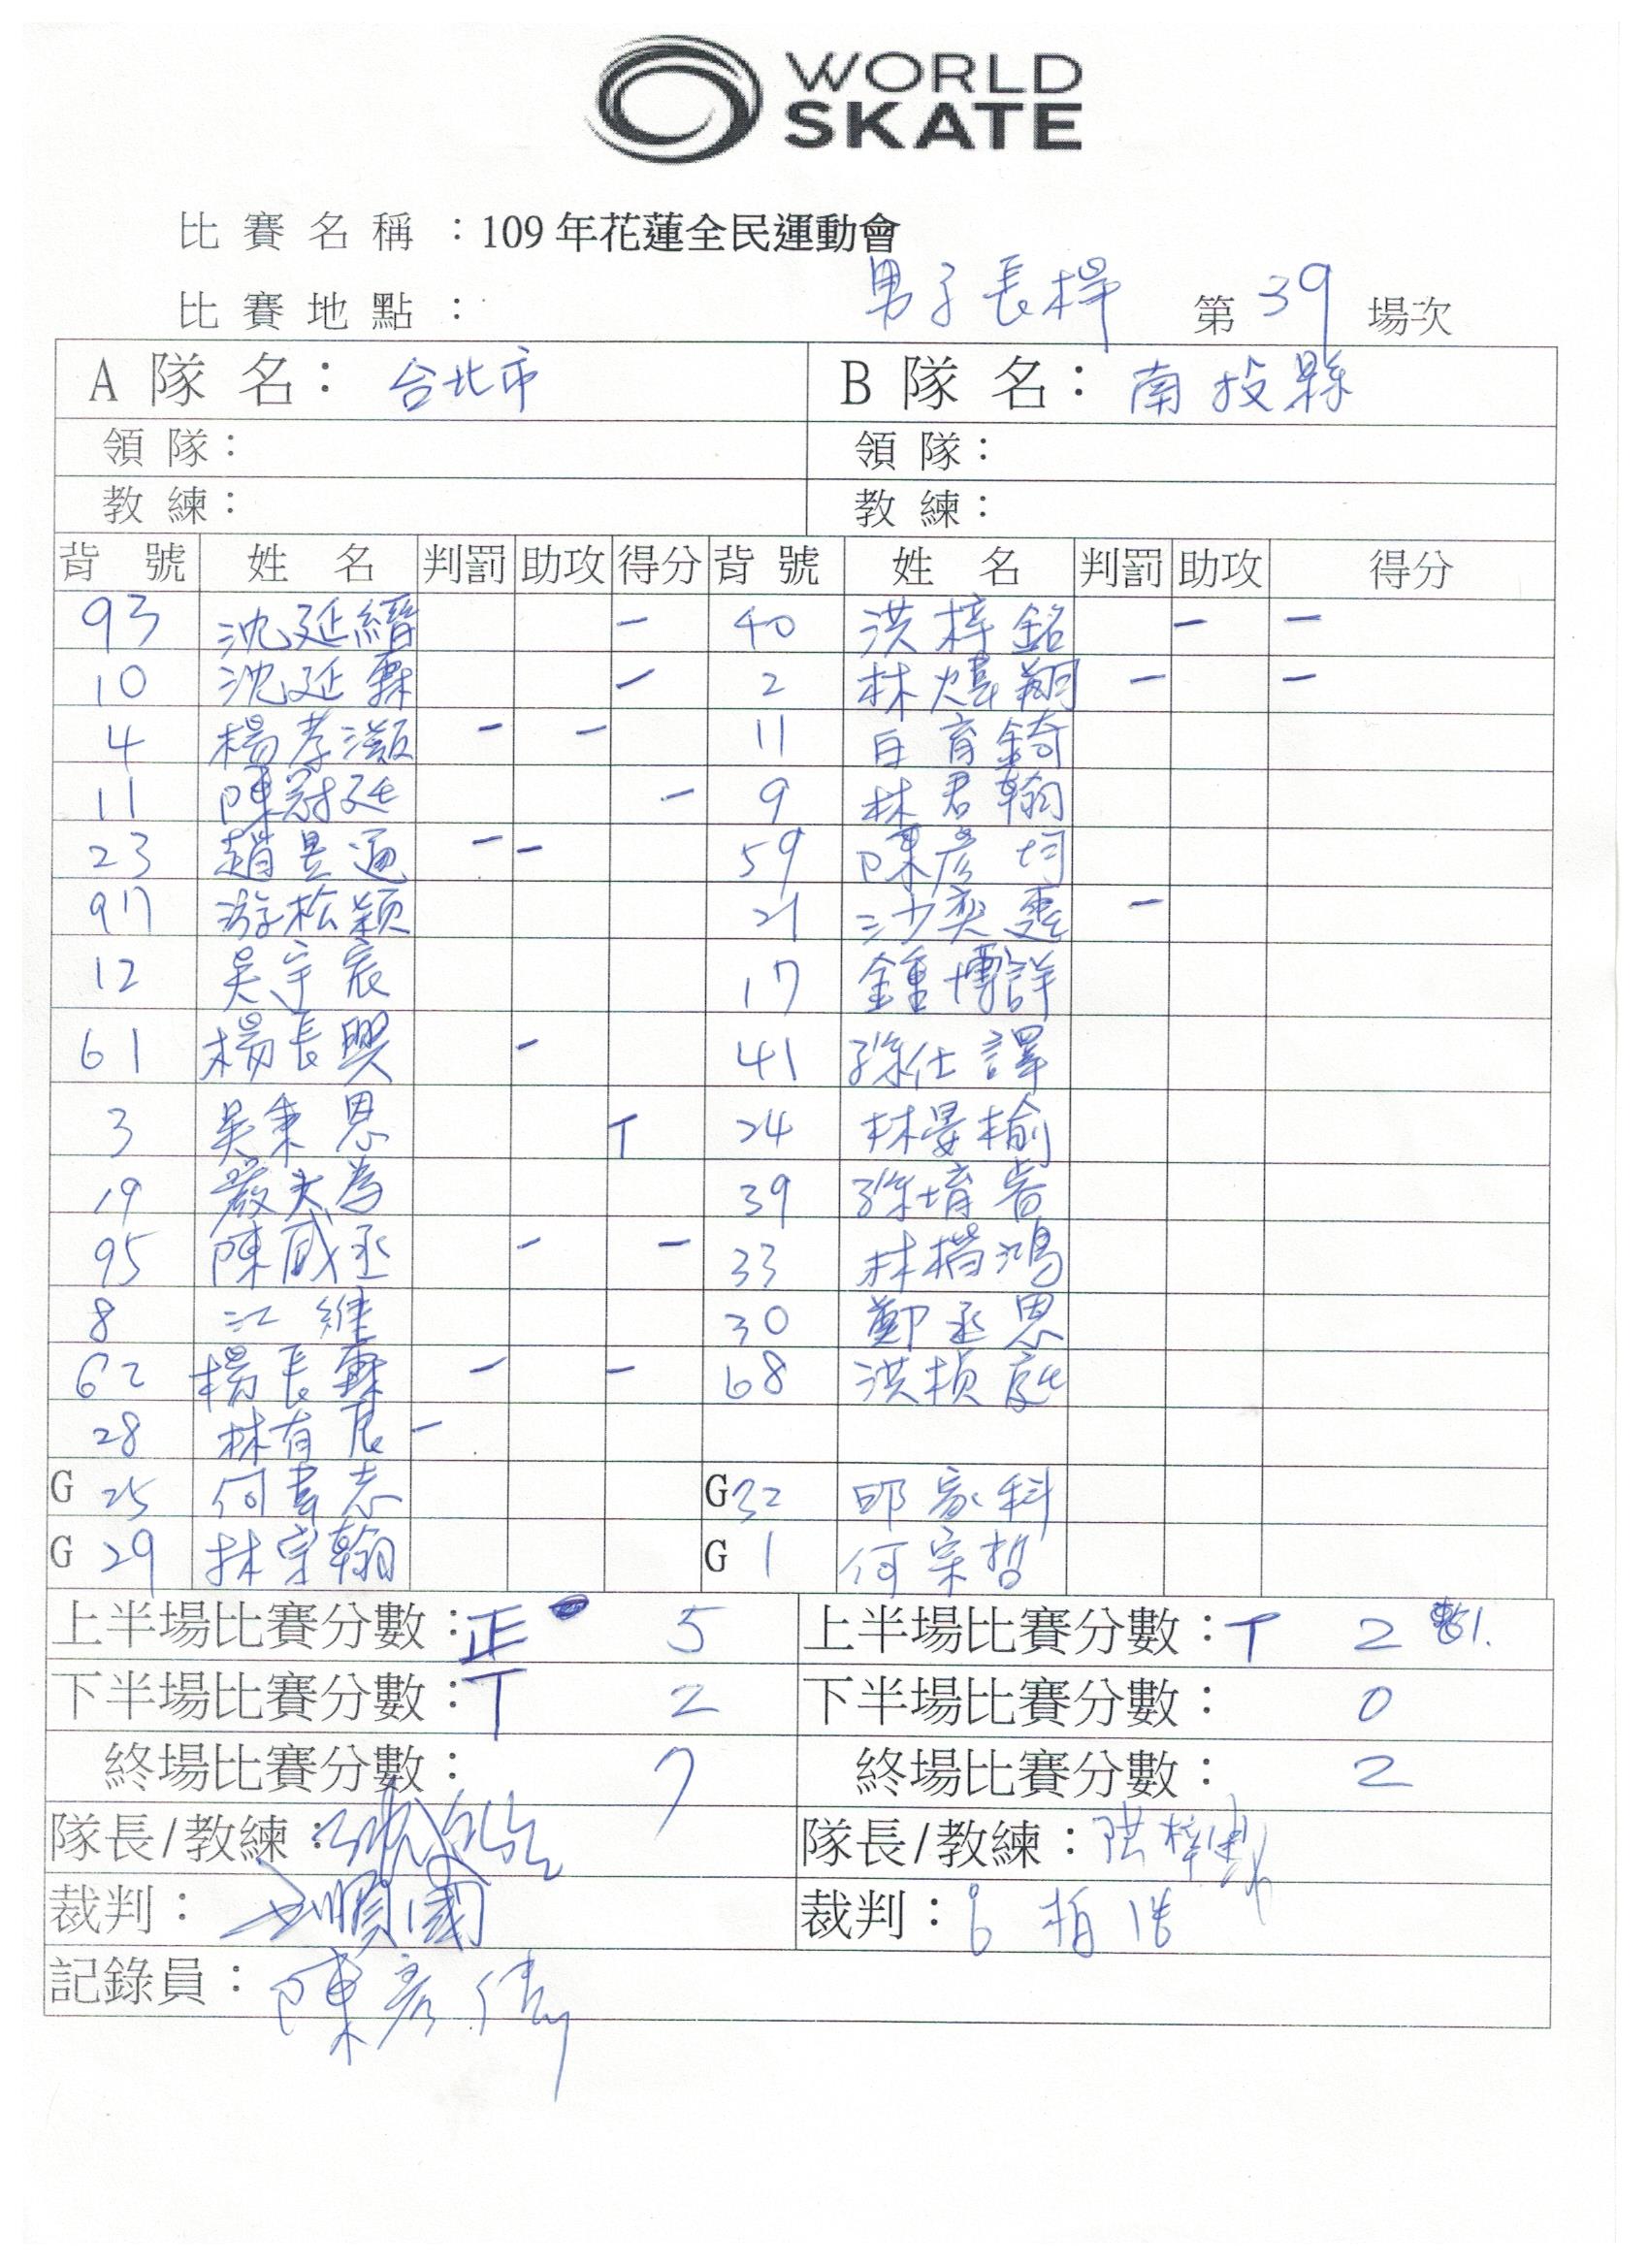 WORLD
SKATE
比賽名稱：109年花蓮全民運動會
比賽地點： 男子長桿 第39場次
A隊名：台北市 B隊名：南投縣
領隊： 領隊：
教練： 教練：
背號 姓名 判罰 助攻 得分 背號 姓名 判罰 助攻 得分
93 沈延縉 一 40 洪梓銘 一 一
10 沈延霖 一 2 林熺翔 一 一
4 楊孝灝 一 一 11 白育錡
11 陳冠廷 一 9 林君翰
23 趙昱 一 一 59 陳彥均
97 游松穎 21 沙奕 一
12 吳宇宸 17 鍾博詳
61 楊長興 一 41 孫仕譯
3 吳秉恩 T 24 林晏榆
19 嚴大為 39 孫堉睿
95 陳威丞 一 一 33 林楷鴻
8 江維 30 鄭丞恩
62 楊長霖 一 一 68 洪楨庭
28 林有辰 一
G 25 何書志 G 32 邱家科
G 29 林宗翰 G 1 何宗哲
上半場比賽分數：正 5 上半場比賽分數：T 2 暫1.
下半場比賽分數：T 2 下半場比賽分數： 0
終場比賽分數： 7 終場比賽分數： 2
隊長/教練： 隊長/教練：洪梓
裁判：順國 裁判：呂柏浩
記錄員：陳彥